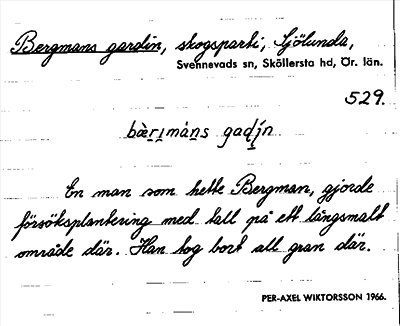 Bergmans gardin, skogsparti, Sjölunda,
Svennevads sn, Sköllersta hd, Ör. län.
529.
bæ̀r̥ı̣màn̥s gadı̣́n
En man som hette Bergman, gjorde
försöksplantering med tall på ett långsmalt
område där. Han tog bort all gran där.
PER-AXEL WIKTORSSON 1966.